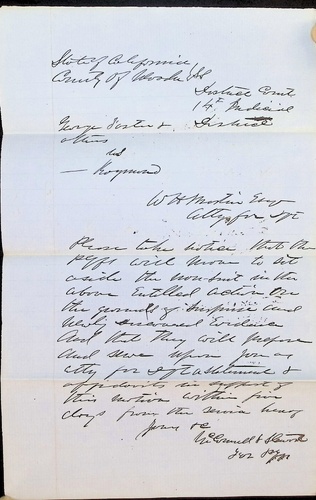 State of California
County Of Nevada } SS
District Court
14th Judicial
District
George Foster &
others
vs
— Raymond
W H Martin Esq
Atty for Dft
Please take notice that the
Plffs will move to set
aside the nonsuit in the
above Entitled action On
the grounds of Surprise and
newly discovered Evidence
And that they will prepare
and serve upon you as
atty for Dft a statement &
affidavits in support of
this motion within five
days from the service hereof
Yours &c
McConnell &
for Plffs